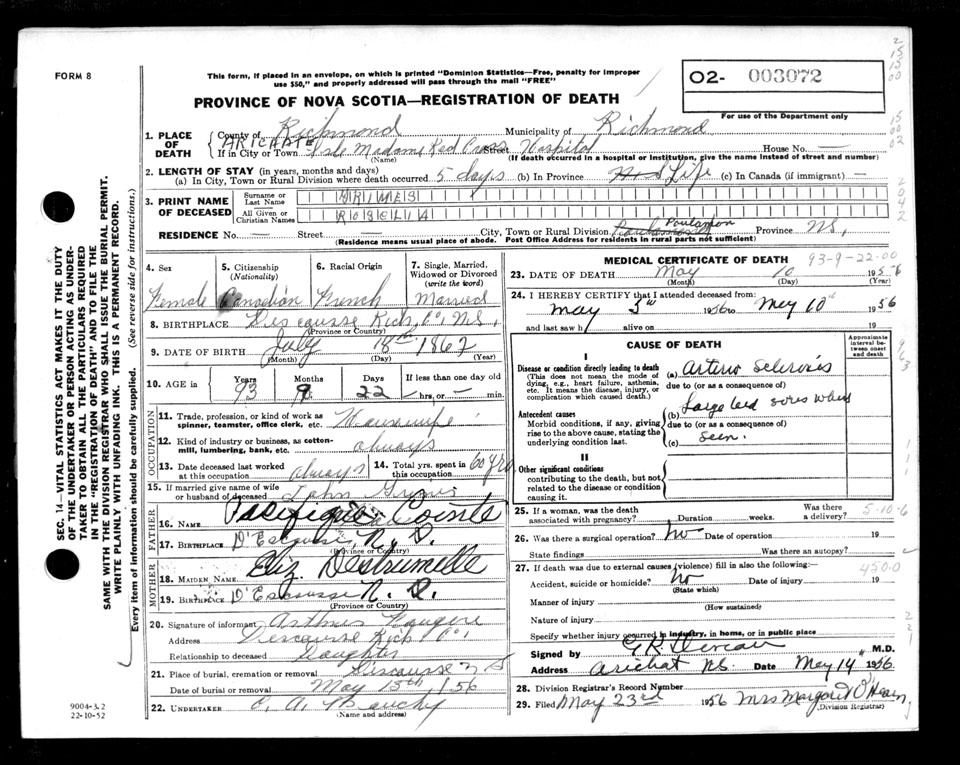 FORM 8
This form, if placed in an envelope, on which is printed "Dominion Statistics—Free, penalty for improper
use $50," and properly addressed will pass through the mail "FREE"
O2- 003072
For use of the Department only
PROVINCE OF NOVA SCOTIA—REGISTRATION OF DEATH
1. PLACE OF DEATH
County of Richmond Municipality of Richmond
ARICHAT
If in City or Town Isle Madame Red Cross Street Hospital House No. —
(Name) (If death occurred in a hospital or institution, give the name instead of street and number)
2. LENGTH OF STAY (in years, months and days)
(a) In City, Town or Rural Division where death occurred 5 days (b) In Province Life (c) In Canada (if immigrant) —
3. PRINT NAME OF DECEASED
Surname or Last Name GRIMES
All Given or Christian Names ROSELIA
RESIDENCE No. — Street — City, Town or Rural Division Poulamon Province NS,
(Residence means usual place of abode. Post Office Address for residents in rural parts not sufficient)
4. Sex
Female
5. Citizenship
(Nationality)
Canadian
6. Racial Origin
French
7. Single, Married, Widowed or Divorced
(write the word)
Married
8. BIRTHPLACE Descousse Rich, Co, NS,
(Province or Country)
9. DATE OF BIRTH July 18th 1862
(Month) (Day) (Year)
10. AGE in Years Months Days If less than one day old
93 9 22 — hrs. or — min.
OCCUPATION
11. Trade, profession, or kind of work as
spinner, teamster, office clerk, etc. Housewife
12. Kind of industry or business, as cotton-
mill, lumbering, bank, etc. always
13. Date deceased last worked
at this occupation always
14. Total yrs. spent in
this occupation 60 yrs
15. If married give name of wife
or husband of deceased John Grimes
FATHER
16. NAME Pacifique Cointe
17. BIRTHPLACE D'Escousse, N. S.
(Province or Country)
MOTHER
18. MAIDEN NAME Eliz.
19. BIRTHPLACE D'Escousse N. S.
(Province or Country)
20. Signature of informant
Address Descousse Rich Co,
Relationship to deceased Daughter
21. Place of burial, cremation or removal Discousse N S
Date of burial or removal May 13th 1956
22. UNDERTAKER C. A.
(Name and address)
MEDICAL CERTIFICATE OF DEATH
93-9-22-00
23. DATE OF DEATH May 10 1956
(Month) (Day) (Year)
24. I HEREBY CERTIFY that I attended deceased from:
May 5th 1956 to May 10th 1956
and last saw h alive on 19
CAUSE OF DEATH
Approximate interval between onset and death
I
Disease or condition directly leading to death
(This does not mean the mode of
dying, e.g., heart failure, asthenia,
etc. It means the disease, injury, or
complication which caused death.)
(a) Arterio Sclerosis
due to (or as a consequence of)
Antecedent causes
Morbid conditions, if any, giving
rise to the above cause, stating the
underlying condition last.
(b) Large bed sores when
due to (or as a consequence of)
(c) seen.
II
Other significant conditions
contributing to the death, but not
related to the disease or condition
causing it.
25. If a woman, was the death
associated with pregnancy? Duration weeks. Was there a delivery?
5-10-6
26. Was there a surgical operation? No Date of operation 19
State findings Was there an autopsy?
27. If death was due to external causes (violence) fill in also the following:—
4500
Accident, suicide or homicide? No Date of injury 19
(State which)
Manner of injury
(How sustained)
Nature of injury
Specify whether injury occurred in industry, in home, or in public place
Signed by M.D.
Address Arichat NS. Date May 14 1956
28. Division Registrar's Record Number
29. Filed May 23rd 1956 Mrs Margaret O'Hearn
(Division Registrar)
SEC. 14—VITAL STATISTICS ACT MAKES IT THE DUTY
OF THE UNDERTAKER OR PERSON ACTING AS UNDER-
TAKER TO OBTAIN ALL THE PARTICULARS REQUIRED
IN THE "REGISTRATION OF DEATH" AND TO FILE THE
SAME WITH THE DIVISION REGISTRAR WHO SHALL ISSUE THE BURIAL PERMIT.
WRITE PLAINLY WITH UNFADING INK. THIS IS A PERMANENT RECORD.
Every item of information should be carefully supplied. (See reverse side for instructions.)
9004-3.2
22-10-52